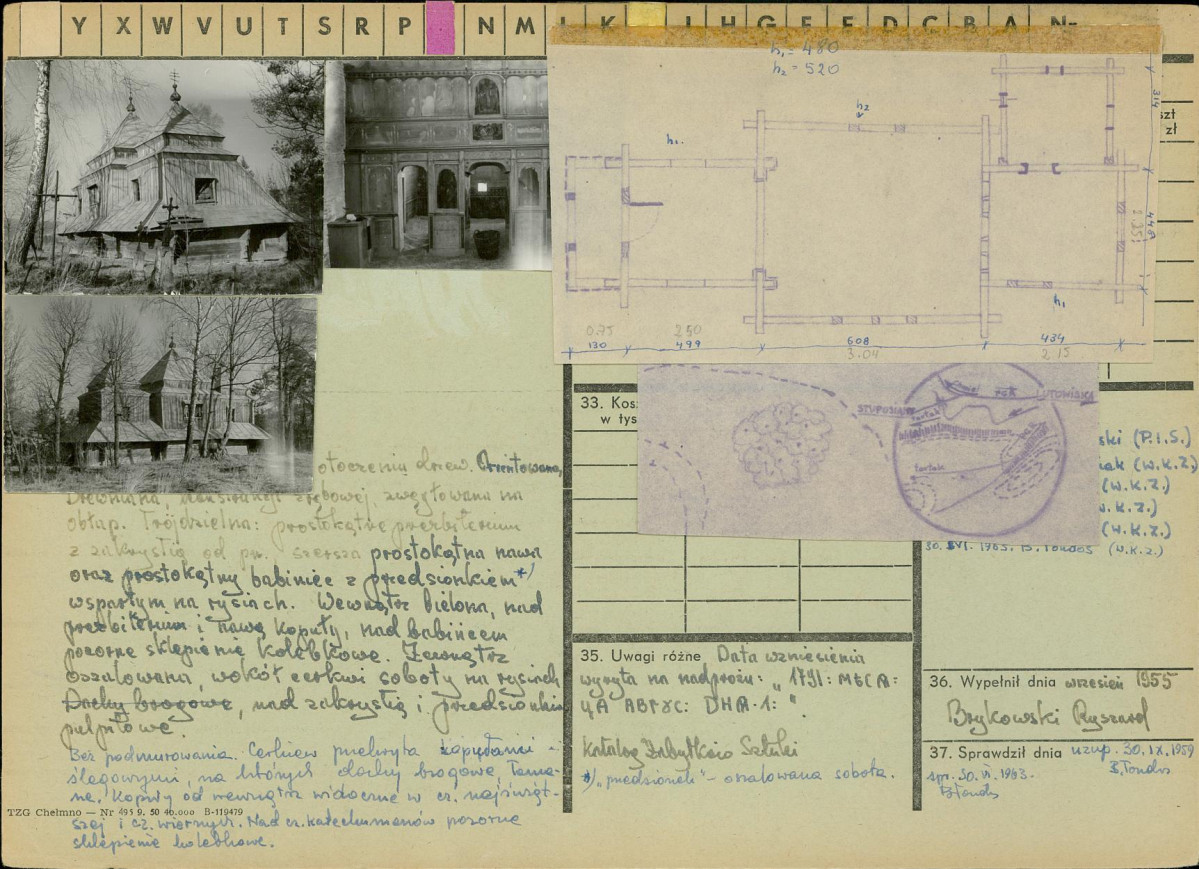 Y X W V U T S R P N M L K J I H G F E D C B A Nr
h₁ = 480
h₂ = 520
h₂
h₁
314
szt
zł
449
2.25
h₁
0.75 2.50
130 499 608 434
3.04 2.15
33. Kosz
w tys
STUPOSIANY
RGK
LUTOWISKA
tartak
tartak
ski (P.I.S.)
iak (W.K.Z.)
(W.K.Z.)
W.K.Z.)
(W.K.Z.)
30. VI. 1963. B. Tondos (W.K.Z.)
otoczeniu drzew. Orientowana,
Drewniana, konstrukcji zrębowej, zwęgłowana na
obłap. Trójdzielna: prostokątne prezbiterium
z zakrystią od pn. szersza prostokątna nawa
oraz prostokątny babiniec z przedsionkiem*)
wspartym na rysiach. Wewnątrz bielona, nad
prezbiterium i nawą kopuły, nad babińcem
pozorne sklepienie kolebkowe. Zewnątrz
oszalowana, wokół cerkwi soboty na rysiach
Dachy brogowe, nad zakrystią i przedsionkiem
pulpitowe.
Bez podmurowania. Cerkiew przekryta zapędami
ślęgowymi, na których dachy brogowe, łama-
ne. Kopuły od wewnątrz widoczne w cz. najświęt-
szej i cz. wiernych. Nad cz. katechumenów pozorne
sklepienie kolebkowe.
TZG Chełmno — Nr 495 9. 50 40.000 B-119479
35. Uwagi różne Data wzniesienia
wyryta na nadprożu: „1791: МЕСА:
ЦА АВГУС: ДНА·1: ".
Katalog Zabytków Sztuki
*) „przedsionek" - oszalowana sobota.
36. Wypełnił dnia wrzesień 1955
Brykowski Ryszard
37. Sprawdził dnia uzup. 30.IX.1959
B. Tondos
spr. 30.VI.1963.
B Tondos